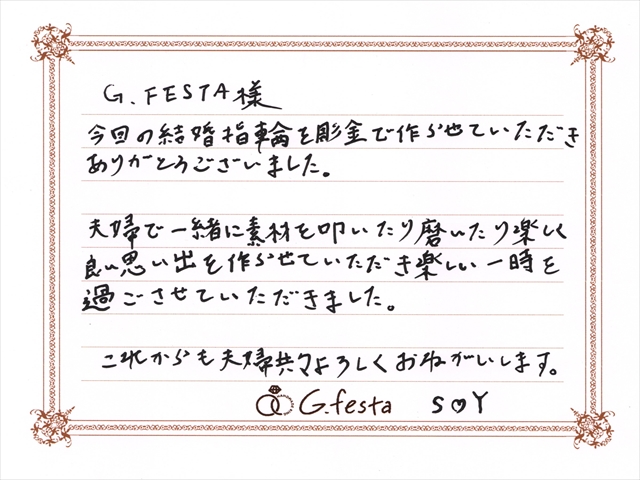 G.FESTA様
今回の結婚指輪を彫金で作らせていただき
ありがとうございました。
夫婦で一緒に素材を叩いたり磨いたり楽しく
良い思い出を作らせていただき楽しい一時を
過ごさせていただきました。
これからも夫婦共々よろしくおねがいします。
G.festa S♥Y